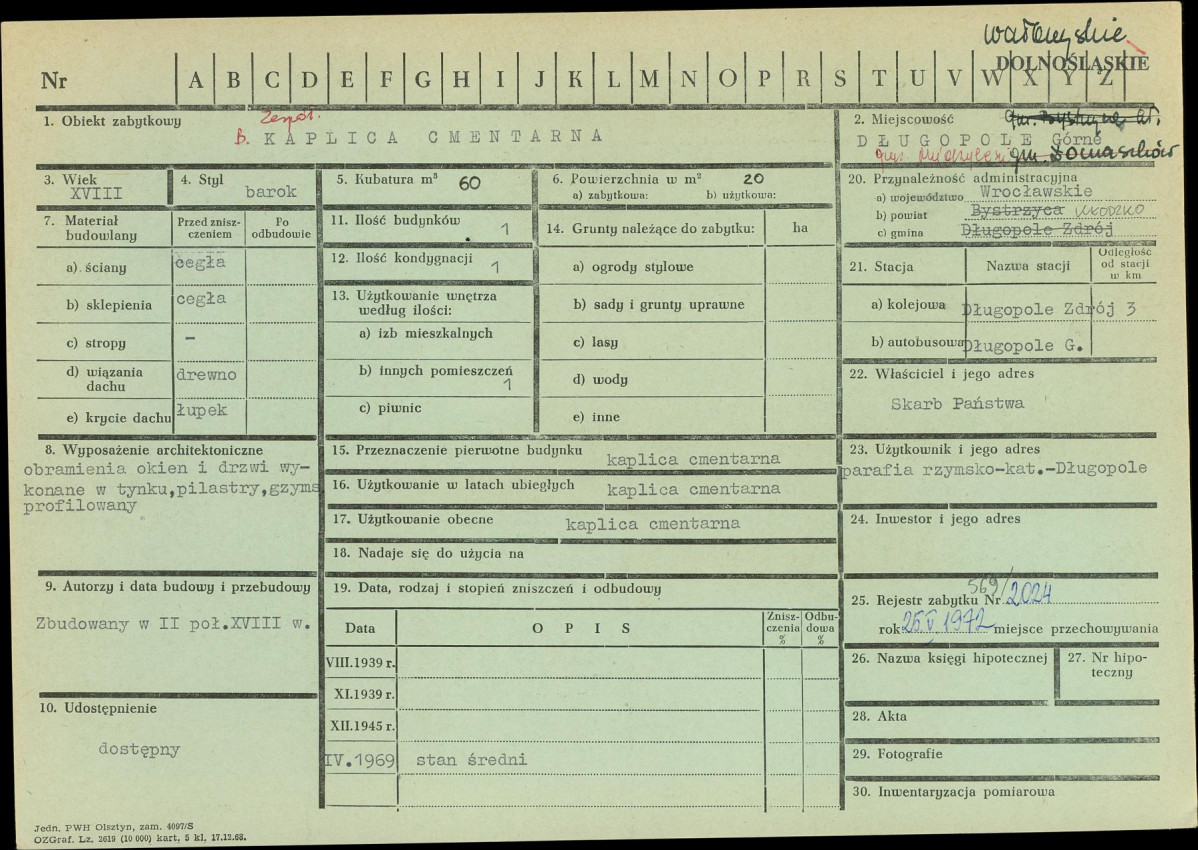 wałbrzyskie
DOLNOŚLĄSKIE
Nr A B C D E F G H I J K L M N O P R S T U V W X Y Z
1. Obiekt zabytkowy
Zespół.
B. KAPLICA CMENTARNA
2. Miejscowość
DŁUGOPOLE Górne
gm. Międzylesie gm. Domaszków
3. Wiek
XVIII
4. Styl
barok
5. Kubatura m³ 60
6. Powierzchnia w m² 20
a) zabytkowa: b) użytkowa:
20. Przynależność administracyjna
a) województwo Wrocławskie
b) powiat Bystrzyca KŁODZKO
c) gmina Długopole Zdrój
7. Materiał budowlany
Przed zniszczeniem
Po odbudowie
a) ściany cegła
b) sklepienia cegła
c) stropy –
d) wiązania dachu drewno
e) krycie dachu łupek
11. Ilość budynków 1
12. Ilość kondygnacji 1
13. Użytkowanie wnętrza
według ilości:
a) izb mieszkalnych
b) innych pomieszczeń
1
c) piwnic
14. Grunty należące do zabytku: ha
a) ogrody stylowe
b) sady i grunty uprawne
c) lasy
d) wody
e) inne
21. Stacja Nazwa stacji Odległość od stacji w km
a) kolejowa Długopole Zdrój 3
b) autobusowa Długopole G.
22. Właściciel i jego adres
Skarb Państwa
8. Wyposażenie architektoniczne
obramienia okien i drzwi wy-
konane w tynku,pilastry,gzyms
profilowany
15. Przeznaczenie pierwotne budynku kaplica cmentarna
16. Użytkowanie w latach ubiegłych kaplica cmentarna
17. Użytkowanie obecne kaplica cmentarna
18. Nadaje się do użycia na
23. Użytkownik i jego adres
parafia rzymsko-kat.-Długopole
24. Inwestor i jego adres
9. Autorzy i data budowy i przebudowy
Zbudowany w II poł.XVIII w.
10. Udostępnienie
dostępny
19. Data, rodzaj i stopień zniszczeń i odbudowy
Data OPIS Zniszczenia % Odbudowa %
VIII.1939 r.
XI.1939 r.
XII.1945 r.
IV.1969 stan średni
25. Rejestr zabytku Nr 569/2024
rok 25 V 1972 miejsce przechowywania
26. Nazwa księgi hipotecznej
27. Nr hipo-
teczny
28. Akta
29. Fotografie
30. Inwentaryzacja pomiarowa
Jedn. PWH Olsztyn, zam. 4097/S
OZGraf. Lz. 2619 (10 000) kart. 5 kl. 17.12.68.